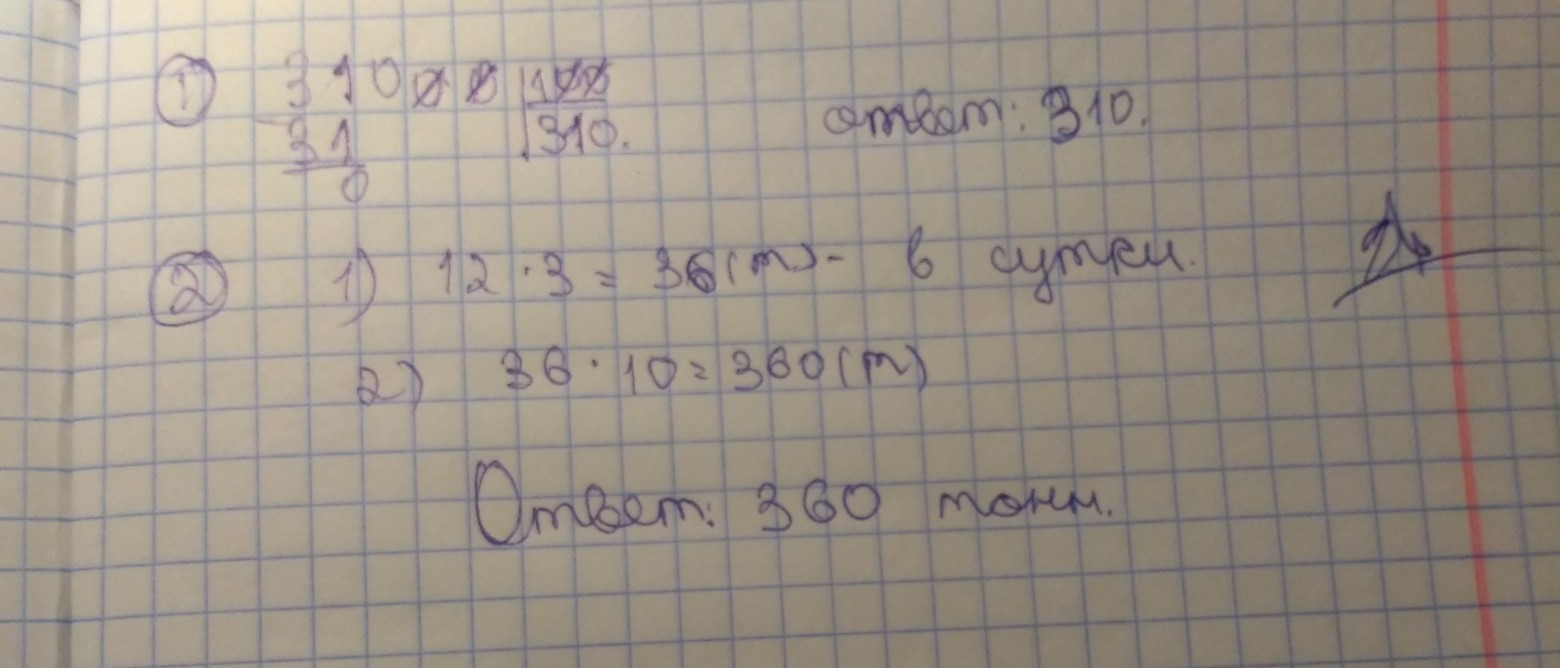 ① 31000 | 100
31 | 310. ответ: 310.
0
② 1) 12 · 3 = 36 (т) - в сутки.
2) 36 · 10 = 360 (т)
Ответ: 360 тонн.